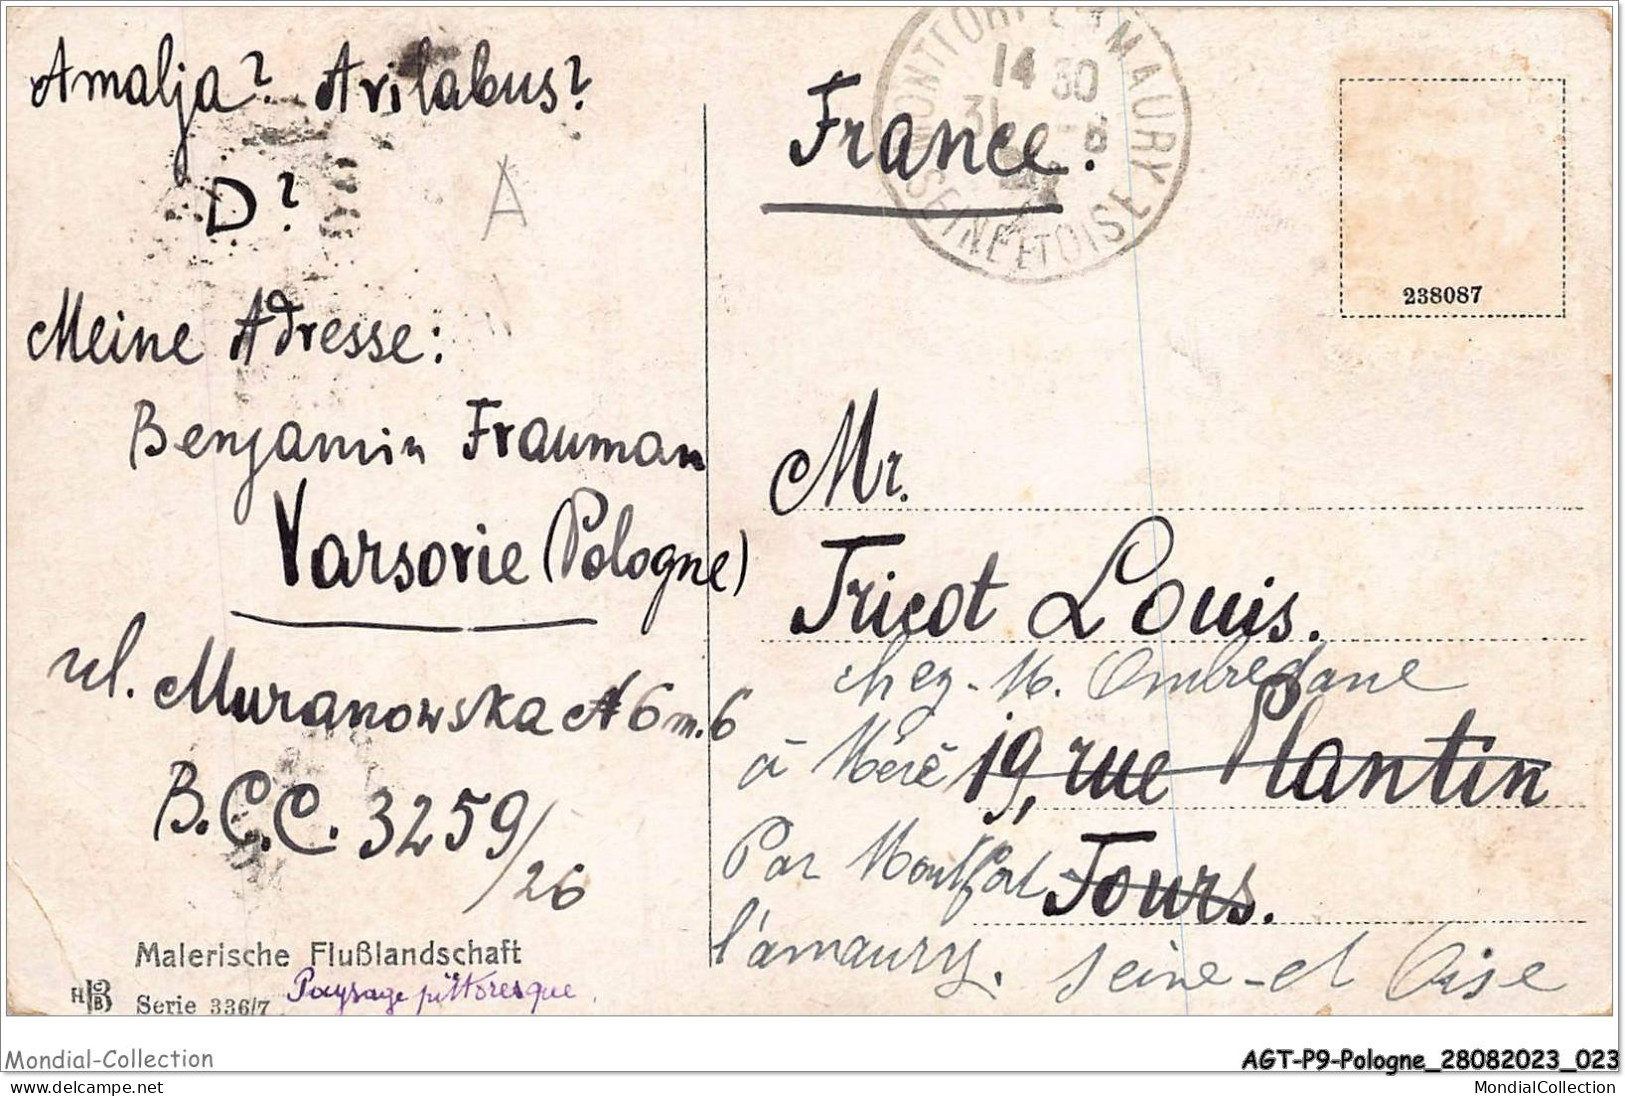 Amalja? Arilabus?
D?
A
Meine Adresse:
Benjamin Frauman
Varsovie (Pologne)
ul. Muranowska № 6 m. 6
B.C.C. 3259/26
Malerische Flußlandschaft
Serie 336/7
Paysage pittoresque.
France.
MONTFORT L'AMAURY
14 30
31 -8
SEINE ET OISE
238087
Mr.
Tricot Louis.
chez M. Ombredane
à Méré 19, rue Plantin
Par Montfort Tours.
l'amaury. Seine-et Oise
Mondial-Collection
delcampe.net
AGT-P9-Pologne_28082023_023
MondialCollection